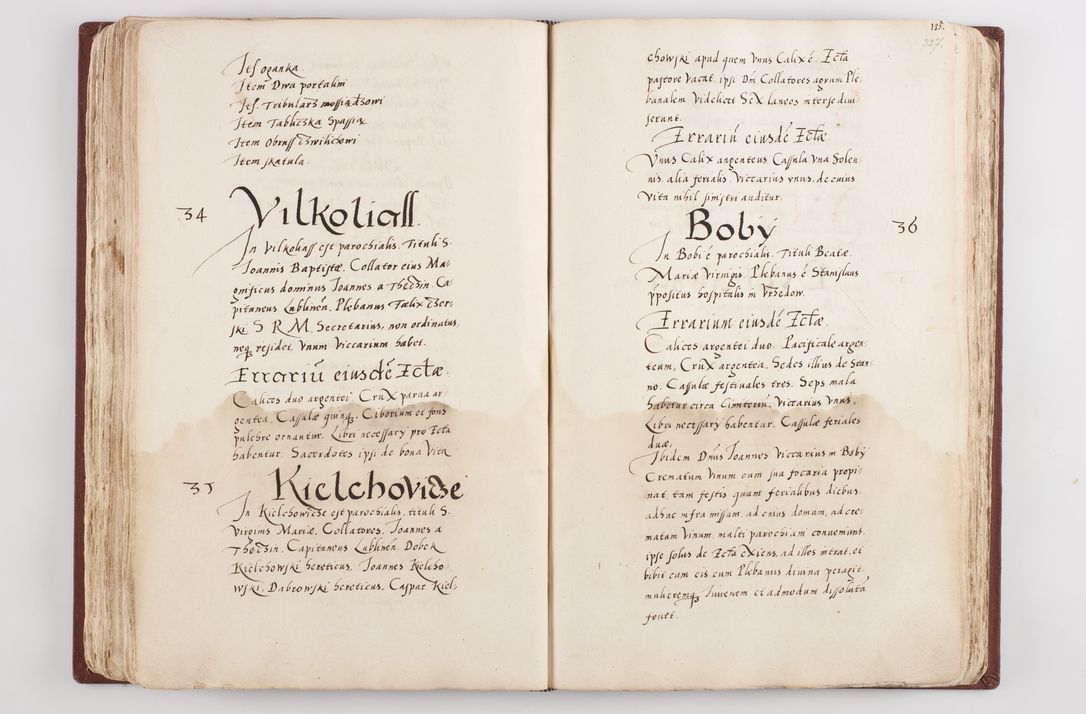 Itē oganka
Item Dwa portalini
Itē Tribularz mossiadzowi
Item Tabliczka Spassia
Item Obruss czwilichowi
Item skatula.
34 Vilkoliass
In Vilkoliass est parochialis. Tituli S.
Ioannis Baptistæ. Collator eius Ma-
gnificus dominus Ioannes a Theczin. Ca-
pitaneus Lublineñ. Plebanus Fælix Czer-
ski S R M. Secretarius, non ordinatus
neq; residet, Vnum Viccarium habet.
Errariū eiusdē Ectæ
Calices duo argentei. Crux parua ar-
gentea. Cassulæ quinq;. Ciborium et fons
pulchre ornantur. Libri necessarÿ pro Ecta
habentur. Sacerdotes ipsi de bona Vita
35 Kielchovicze
In Kielchowicze est parochialis. tituli S.
Virginis Mariæ. Collatores. Ioannes a
Theczin. Capitaneus Lublineñ. Dobek
Kielchowski hereticus. Ioannes Kielcho-
wski. Dabrowski hereticus. Caspar Kiel-
135.
327.
chowski apud quem Vnus Calix ē. Ecta
pastore Vacat. ipsi Dni Collatores agrum Ple-
banalem Videlicet Sex laneos inter se diui
serunt.
Errariū eiusdē Ectæ
Vnus Calix argenteus. Cassula Vna Solen-
nis. alia ferialis. Viccarius vnus, de cuius
Vita nihil sinistri auditur.
Bobÿ 36
In Bobi ē parochialis. Tituli Beatæ.
Mariæ Virginis. Plebanus ē Stanislaus
ppositus hospitalis in Vrzedow.
Errarium eiusdē Ectæ.
Calices argentei duo. Pacificale argen-
teum, Crux argentea. Sedes illius de Stan-
no. Cassulæ festiuales tres. Seps mala
habetur circa Cimiteriū. Viccarius Vnus,
Libri necessarÿ habentur. Cassulæ feriales
duæ.
Ibidem Dñus Ioannes Viccarius in Bobÿ
Crematum Vinum cum sua focaria propi-
nat, tam festis quam ferialibus diebus.
adhuc infra missam. ad cuius domum, ad cre-
matum Vinum. multi parochiam conueniunt.
ipse solus de Ecta exiens, ad illos intrat. et
bibit cum eis cum Plebanus diuina peragit.
mulieremq; Iuuenem et admodum dissoluta
fouet.